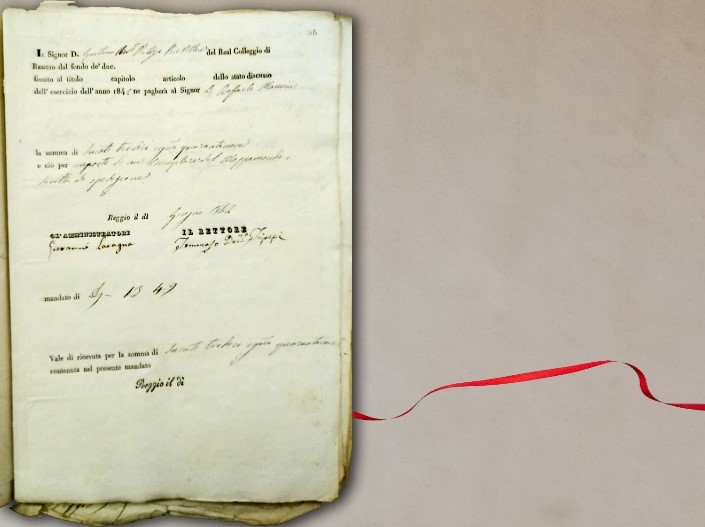 IL Signor D. Gaetano del Real Colleggio di
REGGIO dal fondo de' duc.
fissato al titolo capitolo articolo dello stato discusso
dell' esercizio dell' anno 184 ne pagherà al Signor D. Raffaele
la somma di Ducati tredici e grani quarantanove
e ciò per importo di un esemplare del
di spedizione
Reggio il dì Giugno 1842
GL'AMMINISTRATORI IL RETTORE
Giovanni Lavagna Tommaso
mandato di D. 13 49
Vale di ricevuta per la somma di Ducati tredici e grani quarantanove
contenuta nel presente mandato
Reggio il dì